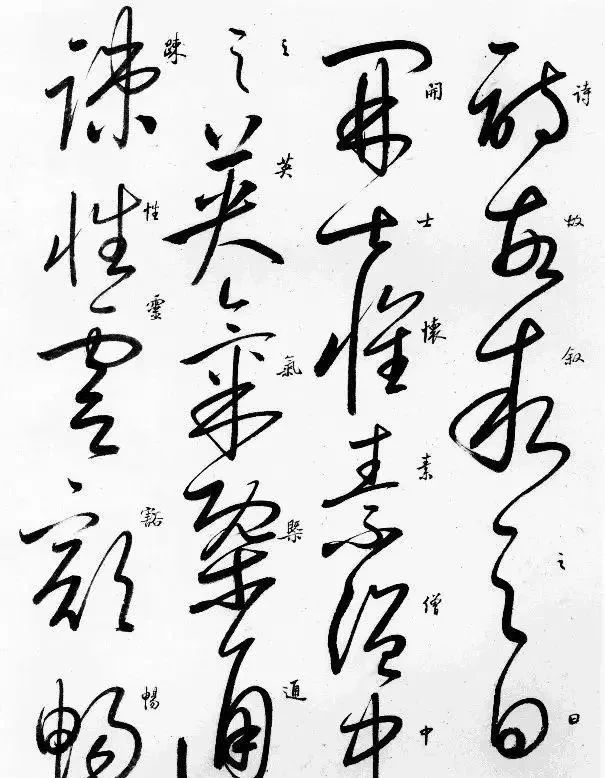 诗故叙之曰
開士懷素僧中
之英氣槩通
疎性靈豁暢